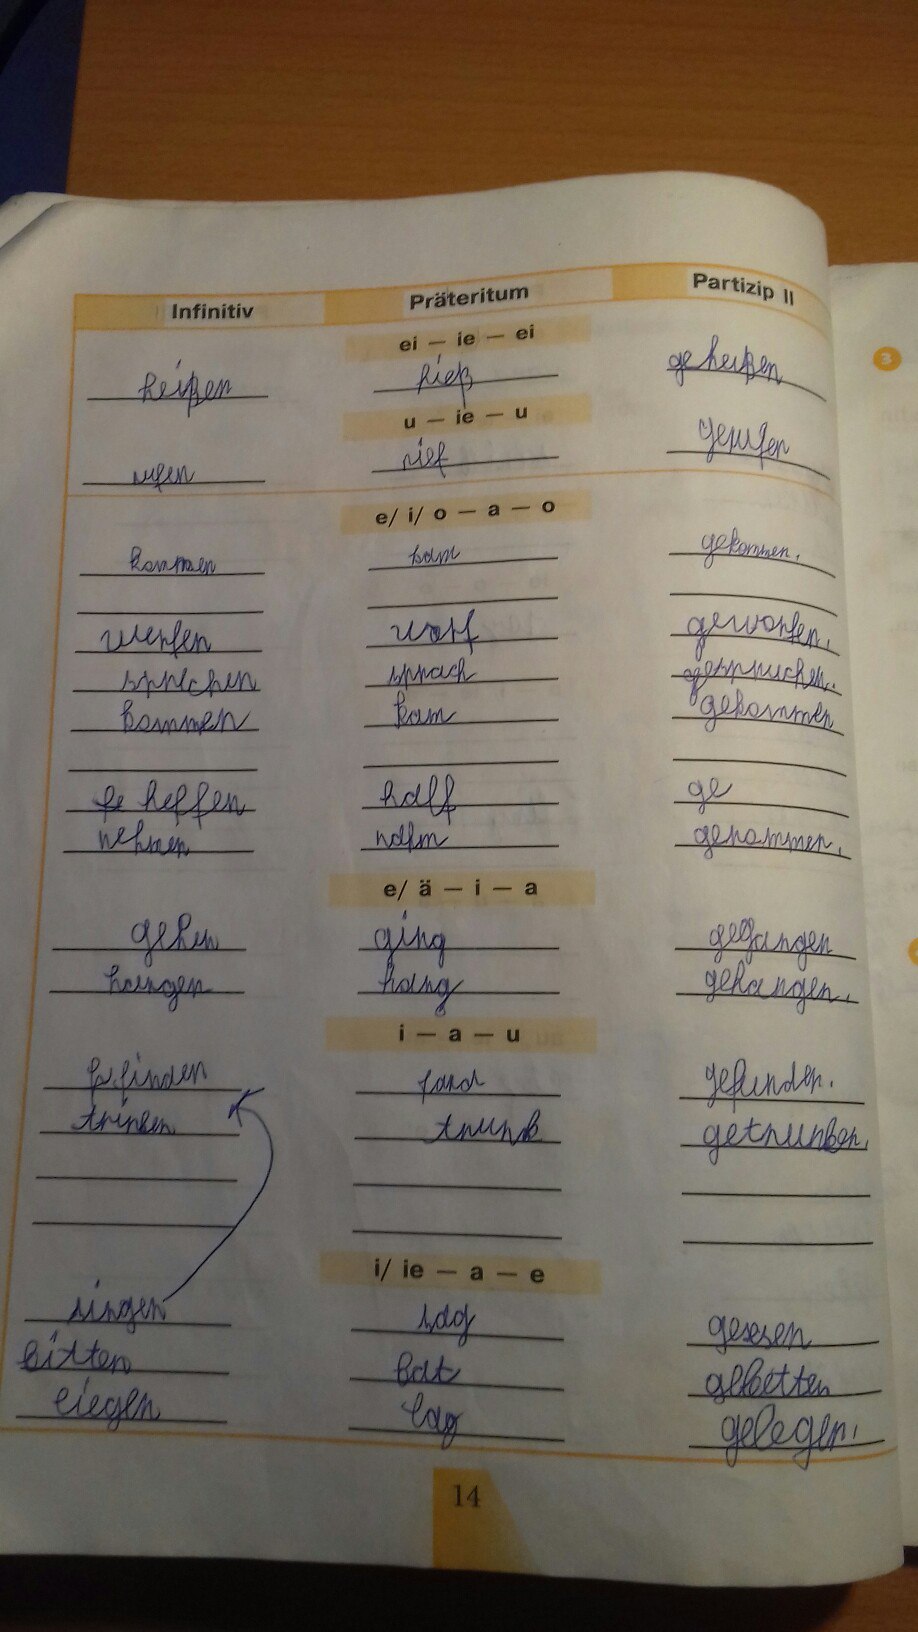 Infinitiv Präteritum Partizip II
ei — ie — ei
heißen hieß geheißen
u — ie — u
rufen rief gerufen
e/ i/ o — a — o
kommen kam gekommen.
werfen warf geworfen.
sprechen sprach gesprochen.
kommen kam gekommen
helfen half ge
nehmen nahm genommen.
e/ ä — i — a
gehen ging gegangen
hangen hang gehangen.
i — a — u
finden fand gefunden.
trinken trunk getrunken.
i/ ie — a — e
singen sag
bitten bat gebetten
liegen lag gelegen.
14
3